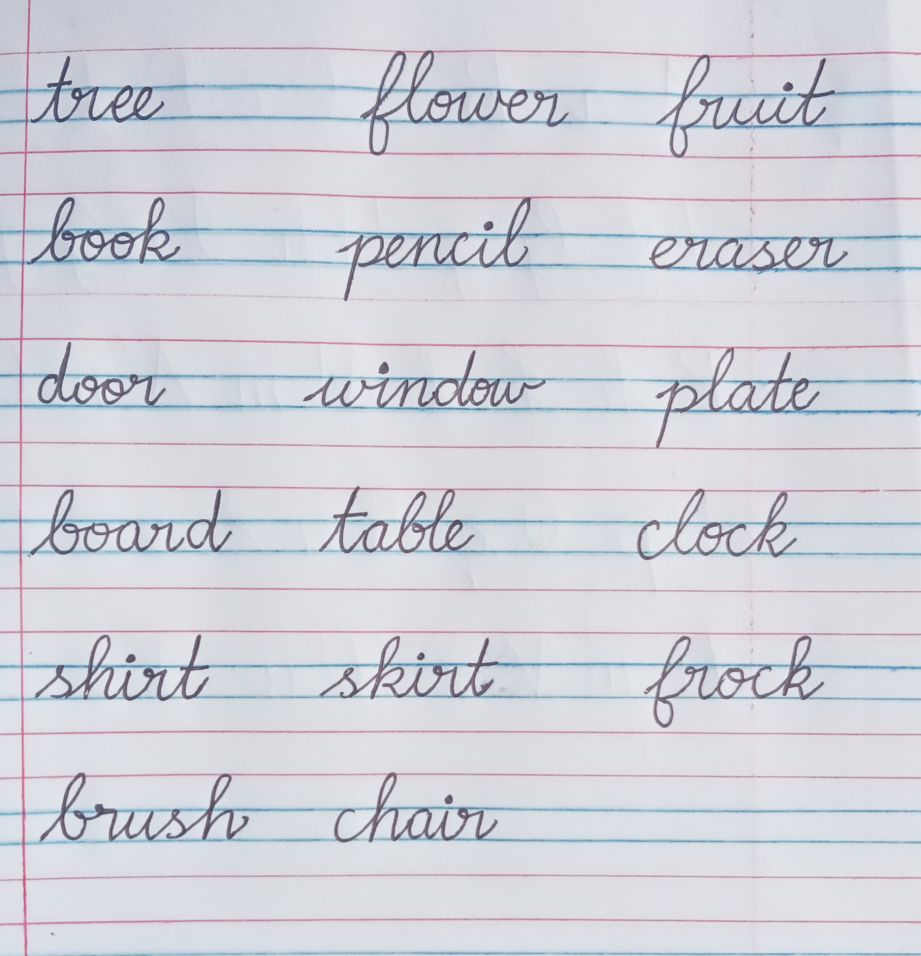 tree flower fruit
book pencil eraser
door window plate
board table clock
shirt skirt frock
brush chair